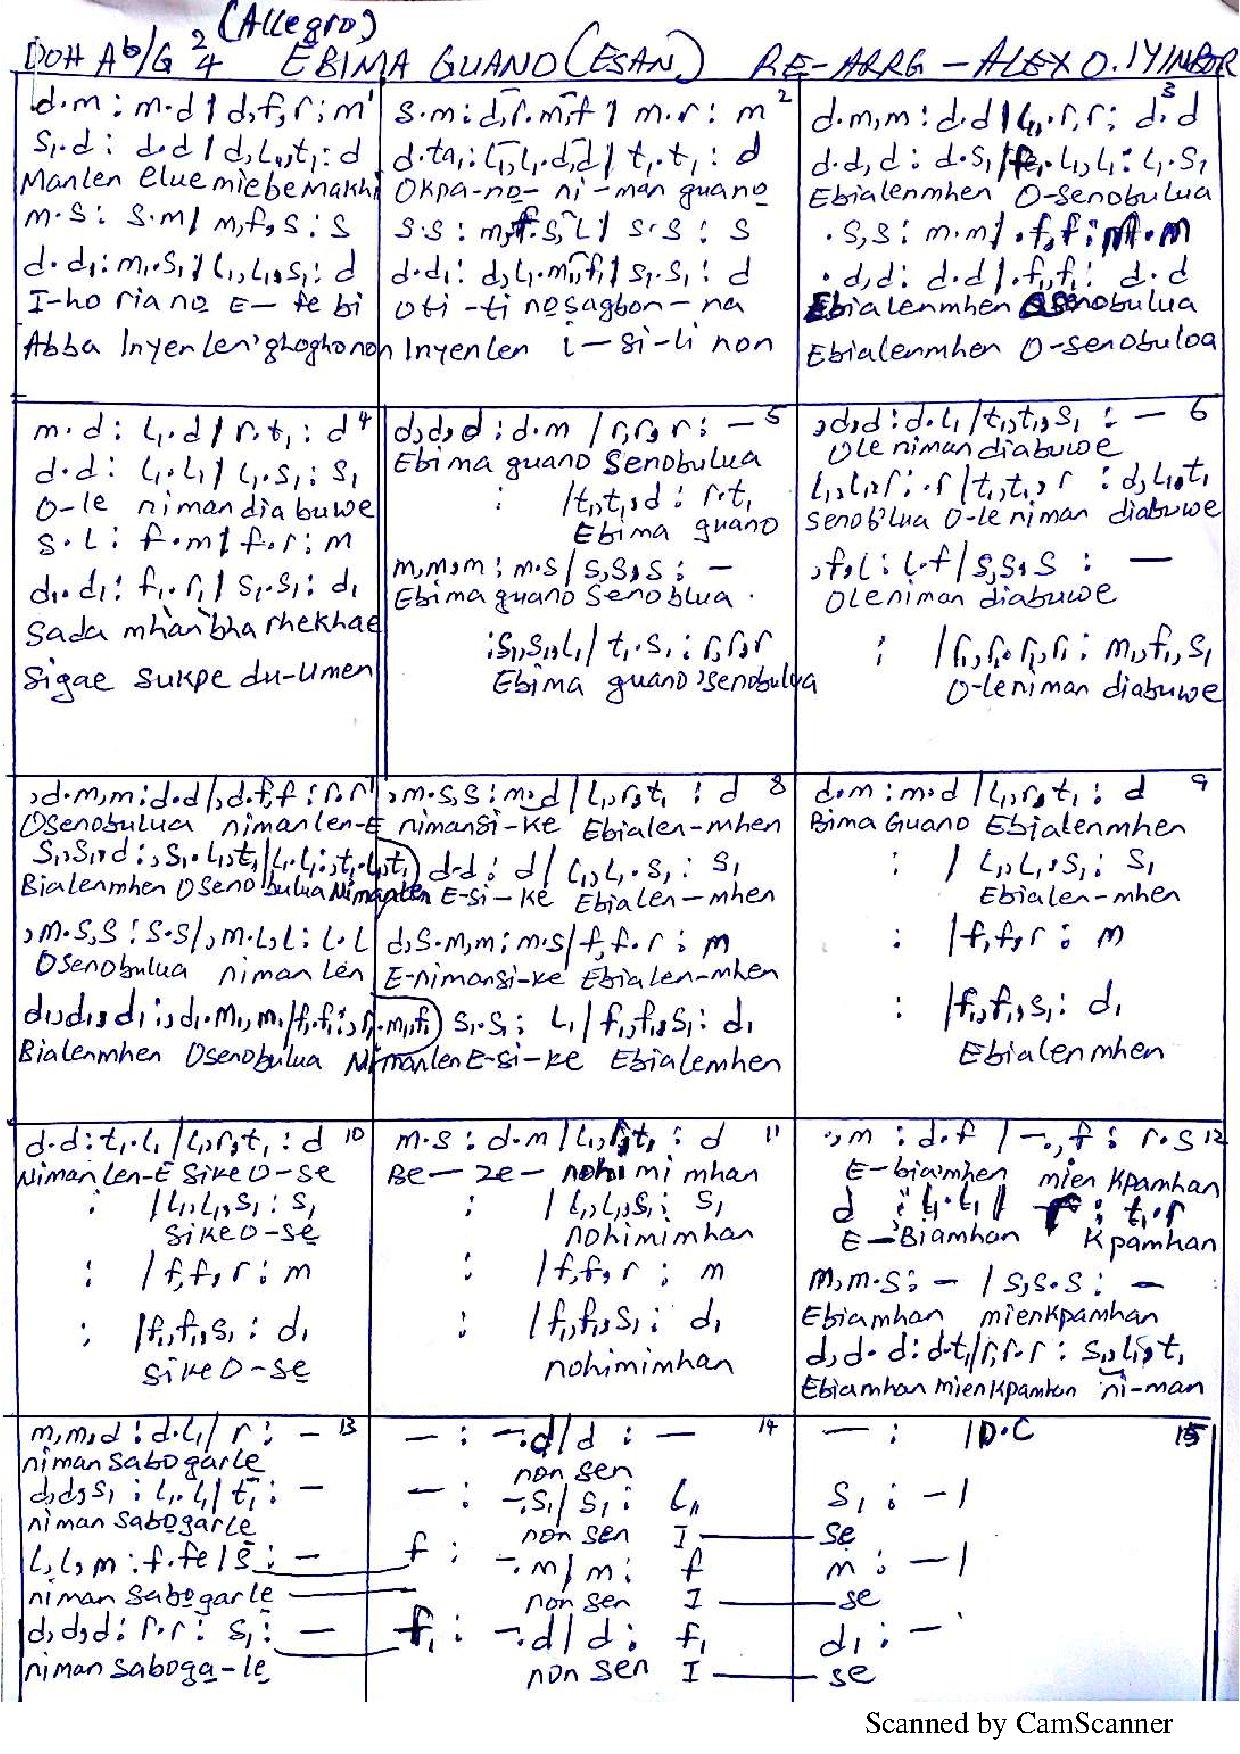 (Allegro)
DOH Ab/G 2/4 EBIMA GUANO (ESAN) RE-ARRG - ALEX O. IYINBOR
d.m : m.d / d,f,r : m 1
s₁.d : d.d / d,l₁,t₁ : d
Manlen eluemiebemakhi
m.s : s.m / m,f,s : s
d.d₁ : m₁.s₁ / l₁,l₁,s₁ : d
I-ho ria no E-fe bi
Abba Inyenlen'ghoghonon
s.m : d,r.m,f / m.r : m 2
d.ta₁ : l₁,l₁.d,d / t₁.t₁ : d
Okpa-no-ni-man guano
s.s : m,f.s,l / s.s : s
d.d₁ : d,l₁.m₁,f₁ / s₁.s₁ : d
Oti-ti nosagbon-na
Inyenlen i-si-li non
d.m,m : d.d / l₁.r,r : d.d 3
d.d,d : d.s₁ / fe₁.l₁,l₁ : l₁.s₁
Ebialenmhen O-senobulua
.s,s : m.m / .f,f : m.m
.d,d : d.d / .f₁,f₁ : d.d
Ebialenmhen Osenobulua
Ebialenmhen O-senobuloa
m.d : l₁.d / r.t₁ : d 4
d.d : l₁.l₁ / l₁.s₁ : s₁
O-le nimandiabuwe
s.l : f.m / f.r : m
d₁.d₁ : f₁.r₁ / s₁.s₁ : d₁
Sada mhan'bha rhekhae
Sigae sukpe du-umen
d,d,d : d.m / r,r,r : - 5
Ebima guano Senobulua
: / t₁,t₁,d : r.t₁
Ebima guano
m,m,m : m.s / s,s,s : -
Ebima guano Senoblua.
:s₁,s₁,l₁ / t₁.s₁ : r,r,r
Ebima guano 'senobulua
,d,d : d.l₁ / t₁,t₁,s₁ : - 6
Ole nimandiabuwe
l₁,l₁,r : .r / t₁,t₁,r : d,l₁,t₁
Senob'lua O-le niman diabuwe
,f,l : l.f / s,s,s : -
Oleniman diabuwe
: / r₁,r₁.r₁,r₁ : m₁,f₁,s₁
O-leniman diabuwe
,d.m,m : d.d / ,d.f,f : r.r
Osenobulua nimanlen-E
s₁,s₁,d : ,s₁.l₁,t₁ / l₁.l₁ : ,t₁.l₁,t₁
Bialenmhen Osenobulua Nimanlen
,m.s,s : s.s / ,m.l,l : l.l
Osenobulua nimanlen
d₁,d₁,d₁ : ,d₁.m₁,m₁ / f₁.f₁ : ,r₁.m₁,f₁
Bialenmhen Osenobulua Nimanlen
,m.s,s : m.d / l₁,r,t₁ : d 8
nimansi-ke Ebialen-mhen
d.d : d / l₁,l₁.s₁ : s₁
E-si-ke Ebialen-mhen
d,s.m,m : m.s / f,f.r : m
E-nimansi-ke Ebialen-mhen
s₁.s₁ : l₁ / f₁,f₁,s₁ : d₁
E-si-ke Ebialemhen
d.m : m.d / l₁,r,t₁ : d 9
Bima Guano Ebialenmhen
: / l₁,l₁,s₁ : s₁
Ebialen-mhen
: / f,f,r : m
: / f₁,f₁,s₁ : d₁
Ebialenmhen
d.d : t₁.l₁ / l₁,r,t₁ : d 10
Nimanlen-E sikeO-se
: / l₁,l₁,s₁ : s₁
sikeO-se
: / f,f,r : m
: / f₁,f₁,s₁ : d₁
sikeO-se
m.s : d.m / l₁,r,t₁ : d 11
Be-ze-nohimimhan
: / l₁,l₁,s₁ : s₁
nohimimhan
: / f,f,r : m
: / f₁,f₁,s₁ : d₁
nohimimhan
.,m : d.f / -.,f : r.s 12
E-biamhen mien Kpamhan
d : l₁.l₁ / r : t₁.r
E-Biamhan Kpamhan
m,m.s : - / s,s.s : -
Ebiamhan mienkpamhan
d,d.d : d.t₁ / r,r.r : s₁,l₁,t₁
Ebiamhan mienkpamhan ni-man
m,m,d : d.l₁ / r : - 13
niman sabogarle
d,d,s₁ : l₁.l₁ / t₁ : -
niman sabogarle
l,l,m : f.fe / s : -
niman sabogarle
d,d,d : r.r : s₁ : -
niman saboga-le
- : -.d / d : - 14
non sen
- : -.s₁ / s₁ : l₁
non sen I
f : -.m / m : f
non sen I
f₁ : -.d / d : f₁
non sen I
- : / D.C 15
s₁ : - /
se
m : - /
se
d₁ : -
se
Scanned by CamScanner